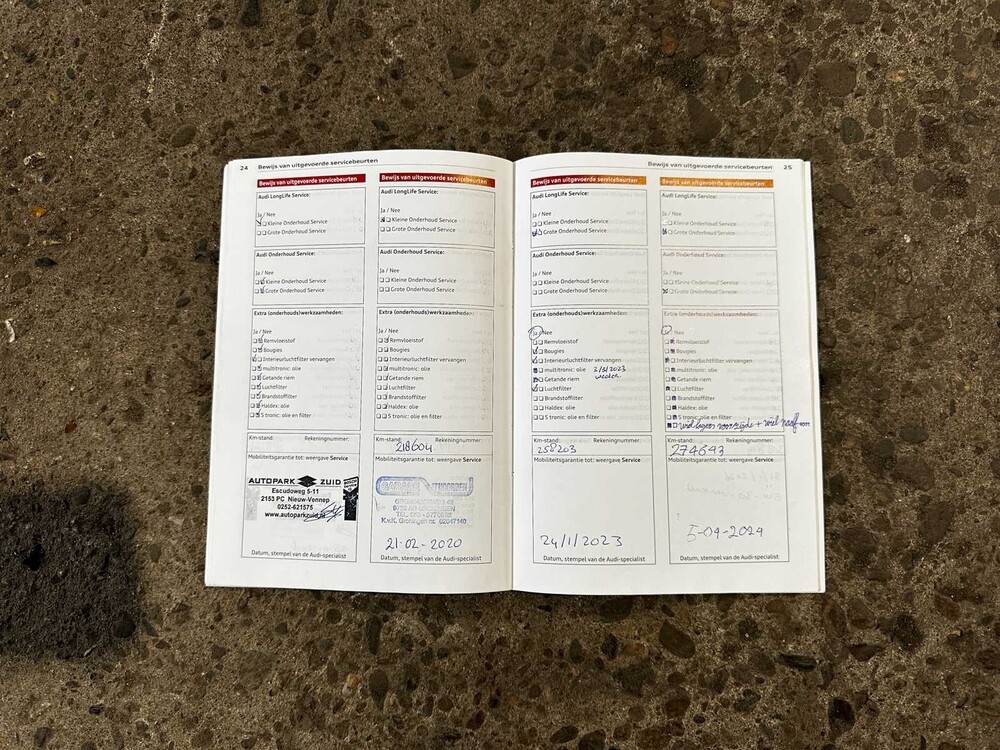 24 Bewijs van uitgevoerde servicebeurten
Bewijs van uitgevoerde servicebeurten
Audi LongLife Service:
Ja / Nee
Kleine Onderhoud Service
Grote Onderhoud Service
Audi Onderhoud Service:
Ja / Nee
Kleine Onderhoud Service
Grote Onderhoud Service
Extra (onderhouds)werkzaamheden:
Ja / Nee
Remvloeistof
Bougies
Interieurluchtfilter vervangen
multitronic: olie
Getande riem
Luchtfilter
Brandstoffilter
Haldex: olie
S tronic: olie en filter
Km-stand: Rekeningnummer:
Mobiliteitsgarantie tot: weergave Service
AUTOPARK ZUID
Escudoweg 5-11
2153 PC Nieuw-Vennep
0252-621575
www.autoparkzuid.nl
Datum, stempel van de Audi-specialist
Bewijs van uitgevoerde servicebeurten
Audi LongLife Service:
Ja / Nee
Kleine Onderhoud Service
Grote Onderhoud Service
Audi Onderhoud Service:
Ja / Nee
Kleine Onderhoud Service
Grote Onderhoud Service
Extra (onderhouds)werkzaamheden:
Ja / Nee
Remvloeistof
Bougies
Interieurluchtfilter vervangen
multitronic: olie
Getande riem
Luchtfilter
Brandstoffilter
Haldex: olie
S tronic: olie en filter
Km-stand: Rekeningnummer:
218604
Mobiliteitsgarantie tot: weergave Service
GARAGE
K.v.K. Groningen nr. 02047140
21-02-2020
Datum, stempel van de Audi-specialist
Bewijs van uitgevoerde servicebeurten 25
Bewijs van uitgevoerde servicebeurten
Audi LongLife Service:
Ja / Nee
Kleine Onderhoud Service
Grote Onderhoud Service
Audi Onderhoud Service:
Ja / Nee
Kleine Onderhoud Service
Grote Onderhoud Service
Extra (onderhouds)werkzaamheden:
Ja / Nee
Remvloeistof
Bougies
Interieurluchtfilter vervangen
multitronic: olie 3/5/2023
Getande riem
Luchtfilter
Brandstoffilter
Haldex: olie
S tronic: olie en filter
Km-stand: Rekeningnummer:
258203
Mobiliteitsgarantie tot: weergave Service
24/1/2023
Datum, stempel van de Audi-specialist
Bewijs van uitgevoerde servicebeurten
Audi LongLife Service:
Ja / Nee
Kleine Onderhoud Service
Grote Onderhoud Service
Audi Onderhoud Service:
Ja / Nee
Kleine Onderhoud Service
Grote Onderhoud Service
Extra (onderhouds)werkzaamheden:
Ja / Nee
Remvloeistof
Bougies
Interieurluchtfilter vervangen
multitronic: olie
Getande riem
Luchtfilter
Brandstoffilter
Haldex: olie
S tronic: olie en filter
wiellagers voorzijde + wiel naaf
Km-stand: Rekeningnummer:
274693
Mobiliteitsgarantie tot: weergave Service
5-04-2024
Datum, stempel van de Audi-specialist